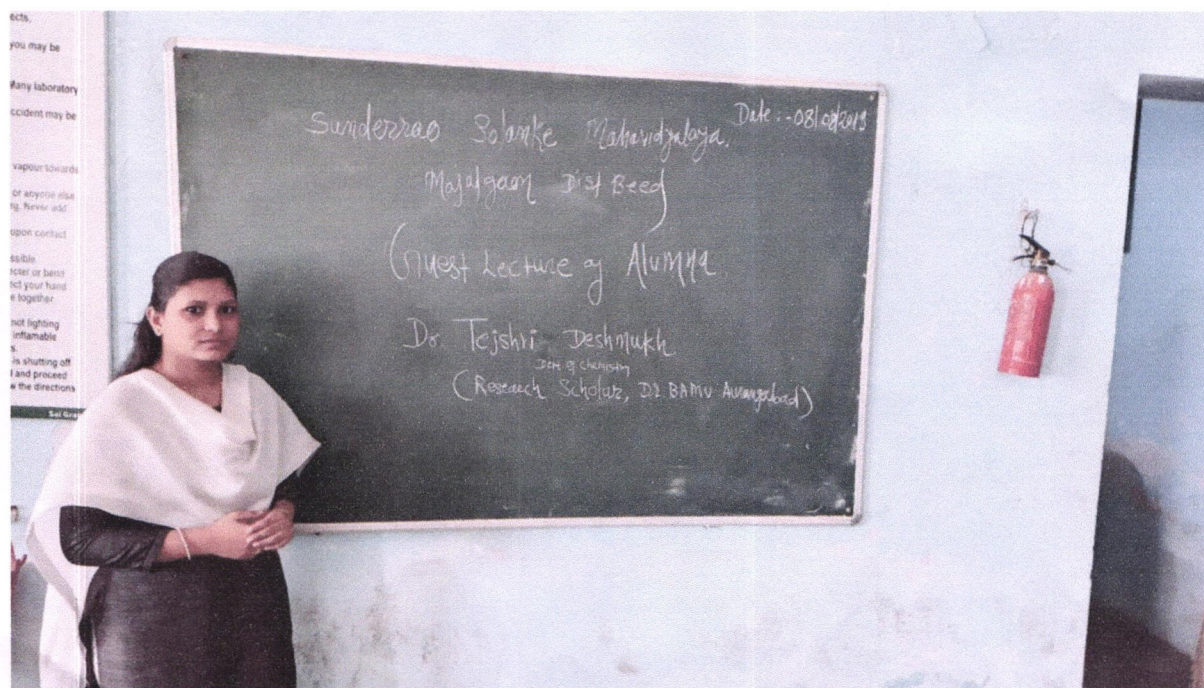 ects.
you may be
Many laboratory
ccident may be
vapour towards
or anyone else
ng. Never add
upon contact
ssible.
ect your hand
e together
not lighting
inflamable
s.
is shutting off
l and proceed
w the directions
Date:-08/08/2019
Sunderrao Solanke Mahavidyalaya.
Majalgaon Dist Beed
Guest Lecture of Alumna
Dr Tejshri Deshmukh
Dept of Chemistry
(Research Scholar, Dr BAMU Aurangabad)